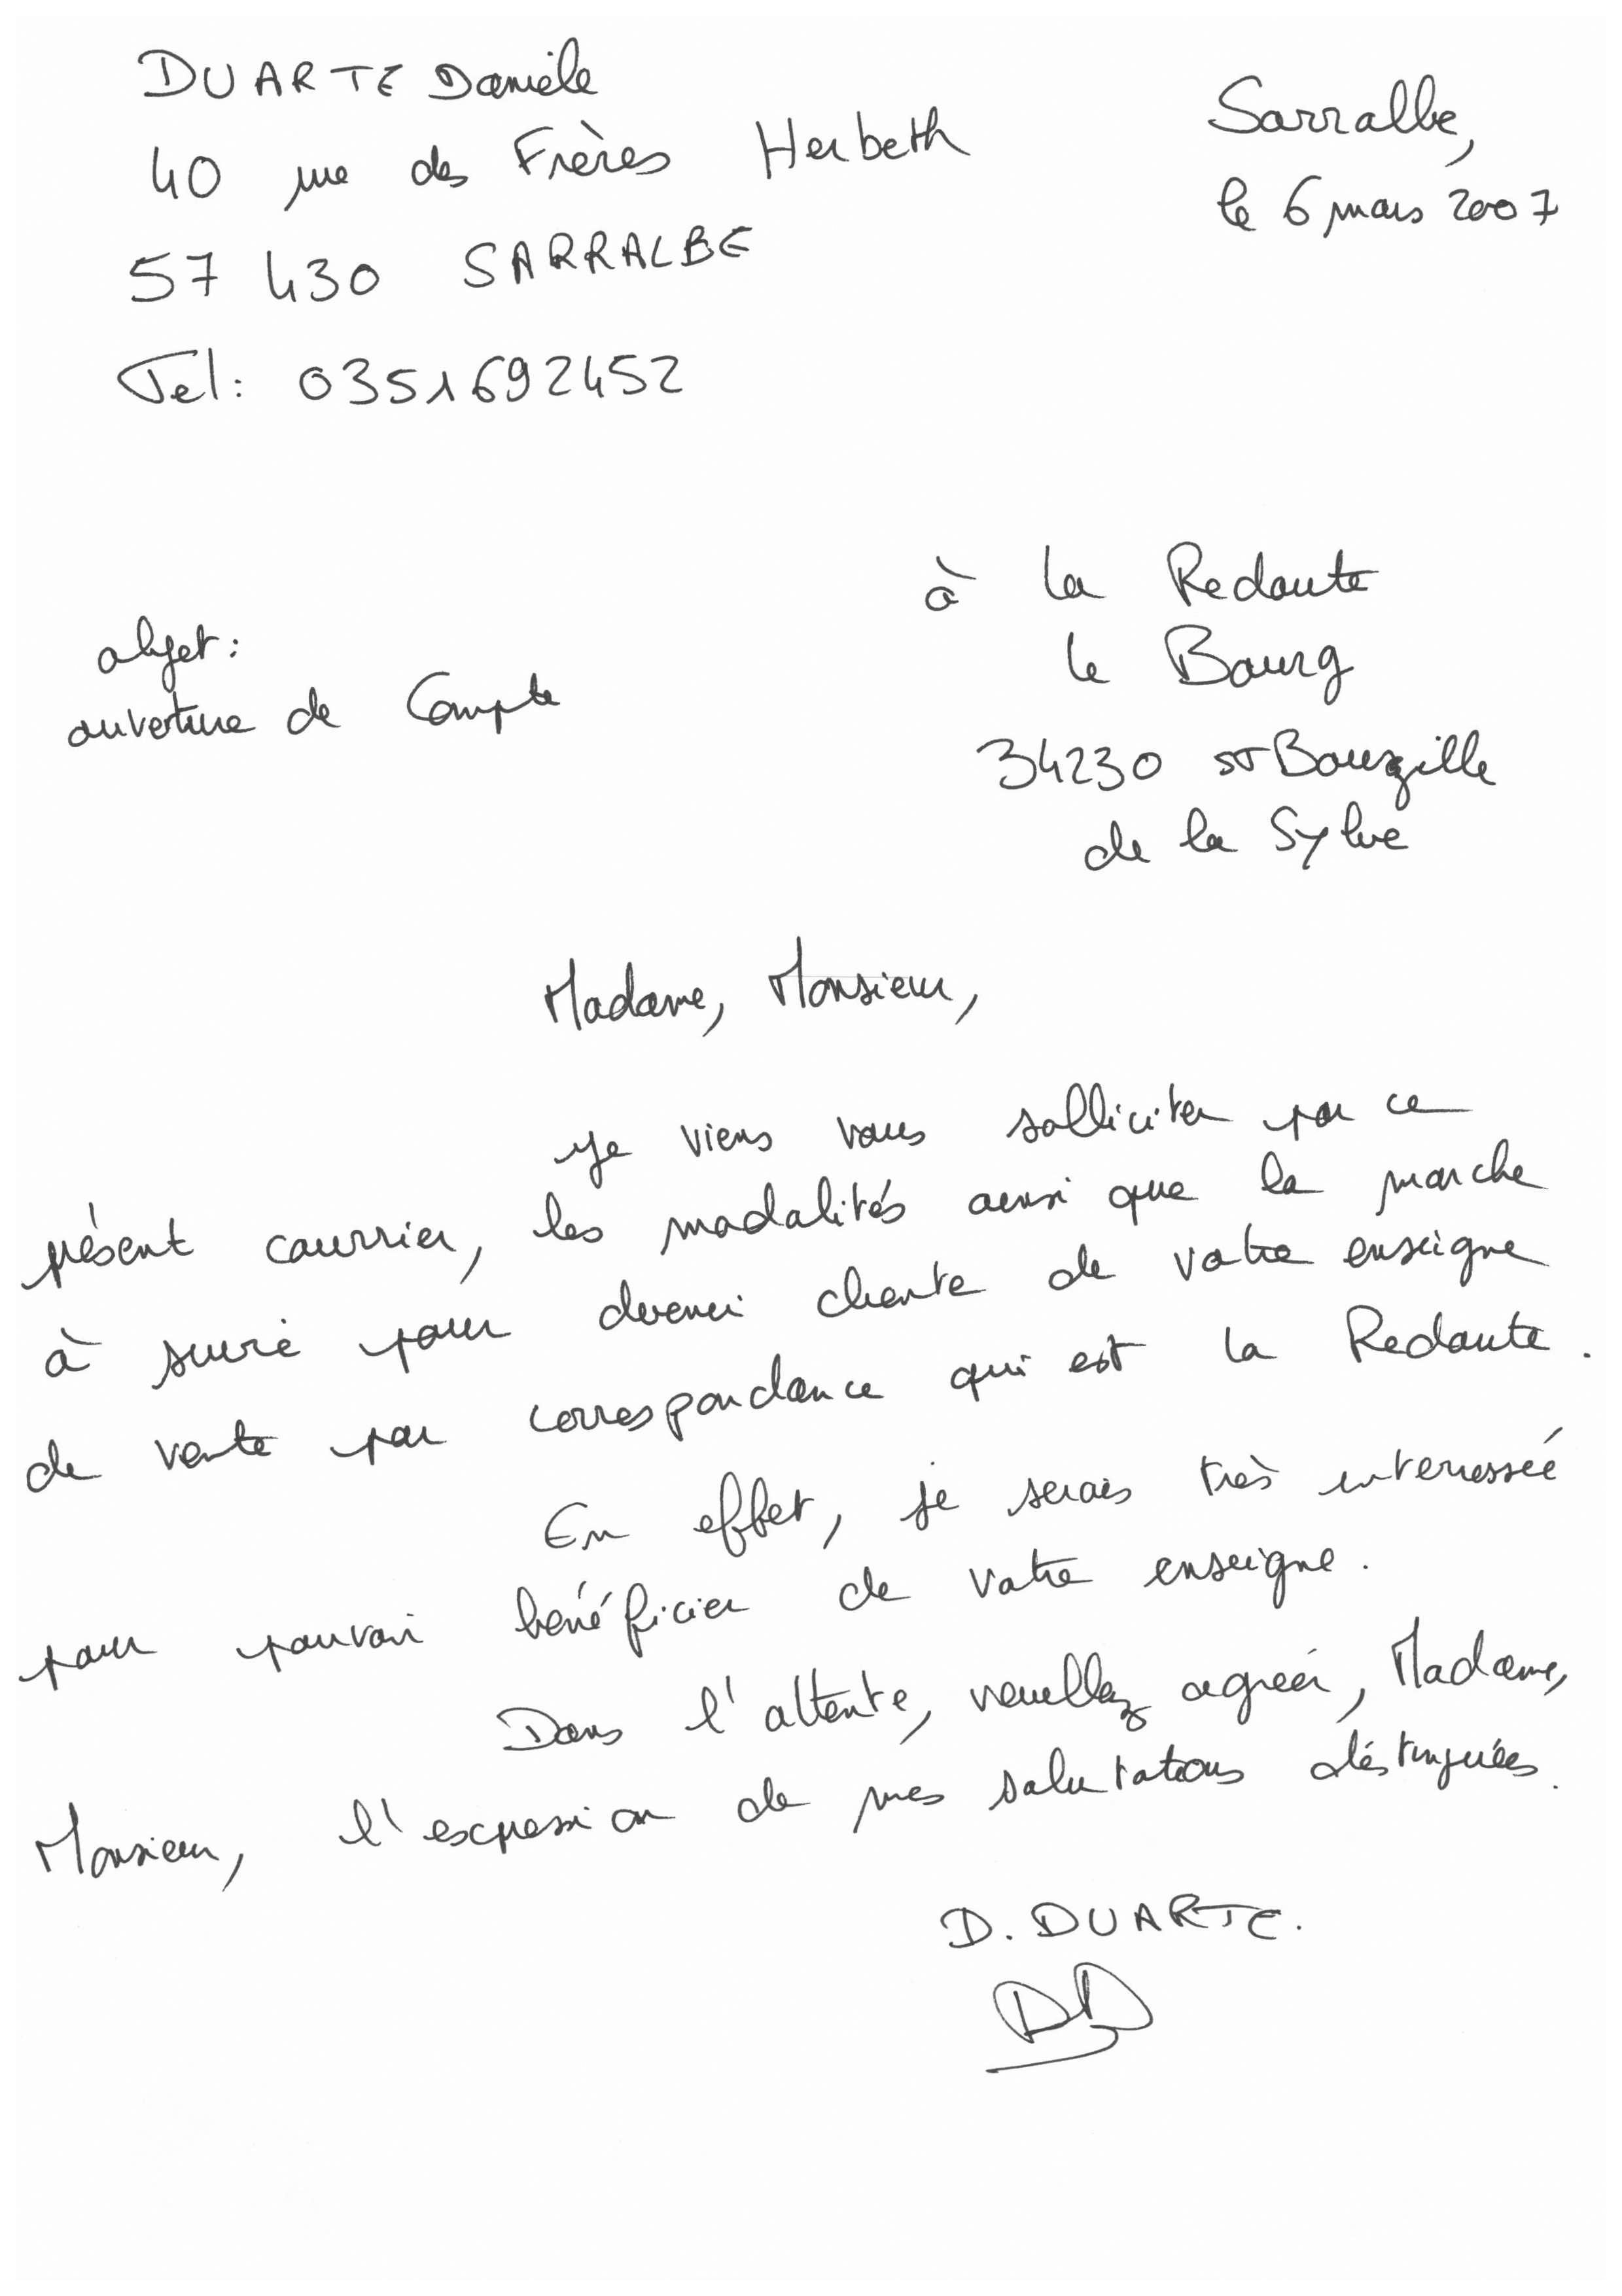 DUARTE Danièle
40 rue des Frères Herbeth
57 430 SARRALBE
Tel: 0351692452
Sarralbe,
le 6 mars 2007
à la Redoute
le Bourg
34230 ST Bauzille
de la Sylve
objet:
ouverture de Compte
Madame, Monsieur,
Je viens vous solliciter par ce
présent courrier, les modalités ainsi que la marche
à suivre pour devenir cliente de votre enseigne
de vente par correspondance qui est la Redoute.
En effet, je serais très interressée
pour pouvoir bénéficier de votre enseigne.
Dans l'attente, veuillez agréer, Madame,
Monsieur, l'expression de mes salutations distinguées.
D. DUARTE.
DD